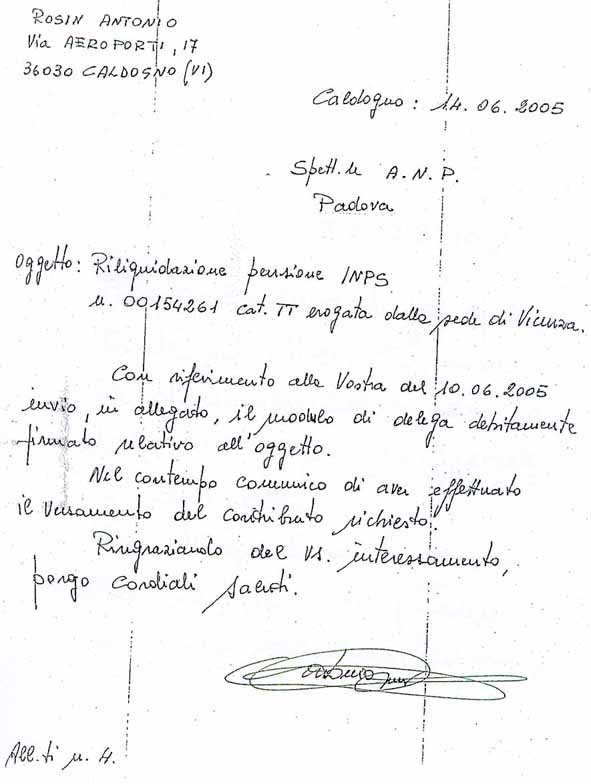 ROSIN ANTONIO
Via AEROPORTI, 17
36030 CALDOGNO (VI)
Caldogno : 14. 06. 2005
Spett.le A. N. P.
Padova
Oggetto: Riliquidazione pensione INPS
n. 00154261 cat. TT erogata dalla sede di Vicenza.
Con riferimento alla Vostra del 10.06.2005
invio, in allegato, il modulo di delega debitamente
firmato relativo all'oggetto.
Nel contempo comunico di aver effettuato
il versamento del contributo richiesto.
Ringraziando del Vs. interessamento,
porgo cordiali saluti.
All.ti n. 4.